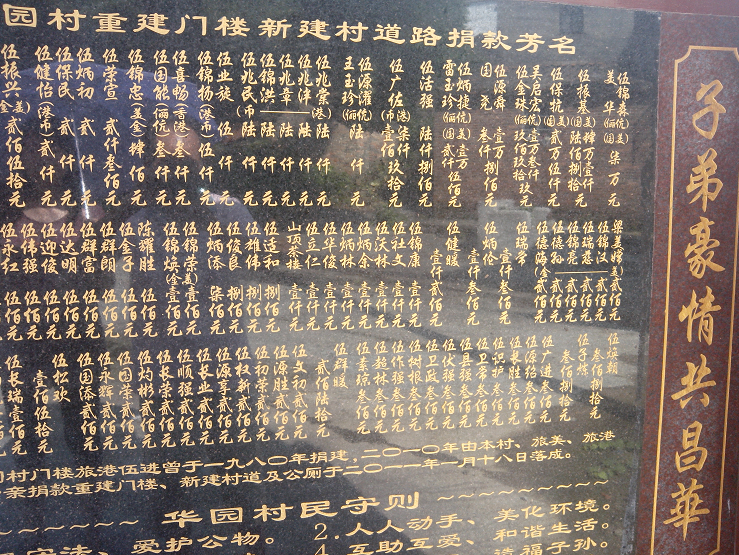 园村重建门楼 新建村道路捐款芳名
伍锦森伉 美华(俪国) 柒万元
伍振基(美国) 肆万壹仟陆佰捌拾元
伍保抗 贰万伍仟元
吴启宏伉 伍金珠(俪) 壹万叁仟玖佰玖拾元
伍源舜 壹万
国尧 叁仟捌佰元
伍炳捷伉 雷玉珍(俪国) 壹万贰仟伍佰元
伍活强 陆仟捌佰元
伍广佐(港币) 柒仟壹佰玖拾元
伍源濯伉 王玉珍(俪) 陆仟元
伍兆棠(港) 陆仟元
伍兆津 陆仟元
伍兆章 陆仟元
伍锦洪 陆仟元
伍兆民(币) 陆仟元
伍业旋 伍仟元
伍锦扬(港币) 伍仟元
伍喜畅(香港) 叁仟元
伍国能(俪伉) 叁仟元
伍锦忠(美金) 肆佰元
伍荣宣 贰仟叁佰元
伍炳初 贰仟元
伍保民 贰仟元
伍健怡(港币) 贰仟元
伍振兴(美金) 贰佰伍拾元
梁美嫦(美) 贰佰元
伍锦汉 贰佰元
伍瑞春 贰佰元
伍锦亮 贰佰元
伍德新 贰佰元
伍德海(金) 贰佰元
伍瑞常 壹仟叁佰元
伍炳俭 壹仟叁佰元
伍健暖 壹仟贰佰元
伍锦康 壹仟元
伍社文 壹仟元
伍沃林 壹仟元
伍炳余 壹仟元
伍炳林 壹仟元
伍华俊 壹仟元
伍立仁 壹仟元
山顶茶楼 壹仟元
伍连和 捌佰元
伍雄伟 捌佰元
伍俊良 捌佰元
伍炳添 柒佰元
伍锦荣(美) 壹佰元
伍锦焕(金) 壹佰元
陈耀胜 伍佰元
伍金子 伍佰元
伍群朗 伍佰元
伍群富 伍佰元
伍达明 伍佰元
伍迎俊 伍佰元
伍伟强 伍佰元
伍永红 伍佰元
伍焕潮 叁佰捌拾元
伍子炼 叁佰捌拾元
伍广进 叁佰元
伍源绍 叁佰元
伍长胜 叁佰元
伍识护 叁佰元
伍卫常 叁佰元
伍具强 叁佰元
伍伏强 叁佰元
伍卫政 叁佰元
伍树根 叁佰元
伍作强 叁佰元
伍超林 叁佰元
伍素琼 叁佰元
伍群暖 贰佰陆拾元
伍文初 贰佰元
伍源胜 贰佰元
伍初荣 贰佰元
伍权新 贰佰元
伍源享 贰佰元
伍长业 贰佰元
伍顺强 贰佰元
伍长荣 贰佰元
伍灼彬 贰佰元
伍国荣 贰佰元
伍永辉 贰佰元
伍国添 贰佰元
伍松欢 壹佰伍拾元
伍长瑞 壹佰元
园村门楼旅港伍进曾于一九八〇年捐建，二〇一〇年由本村、旅美、旅港
亲捐款重建门楼、新建村道及公厕于二〇一一年一月十八日落成。
华园村民守则
2.人人动手、美化环境。
守法、爱护公物。
4.互助互爱、和谐生活。
造福子孙。
子弟豪情共昌華